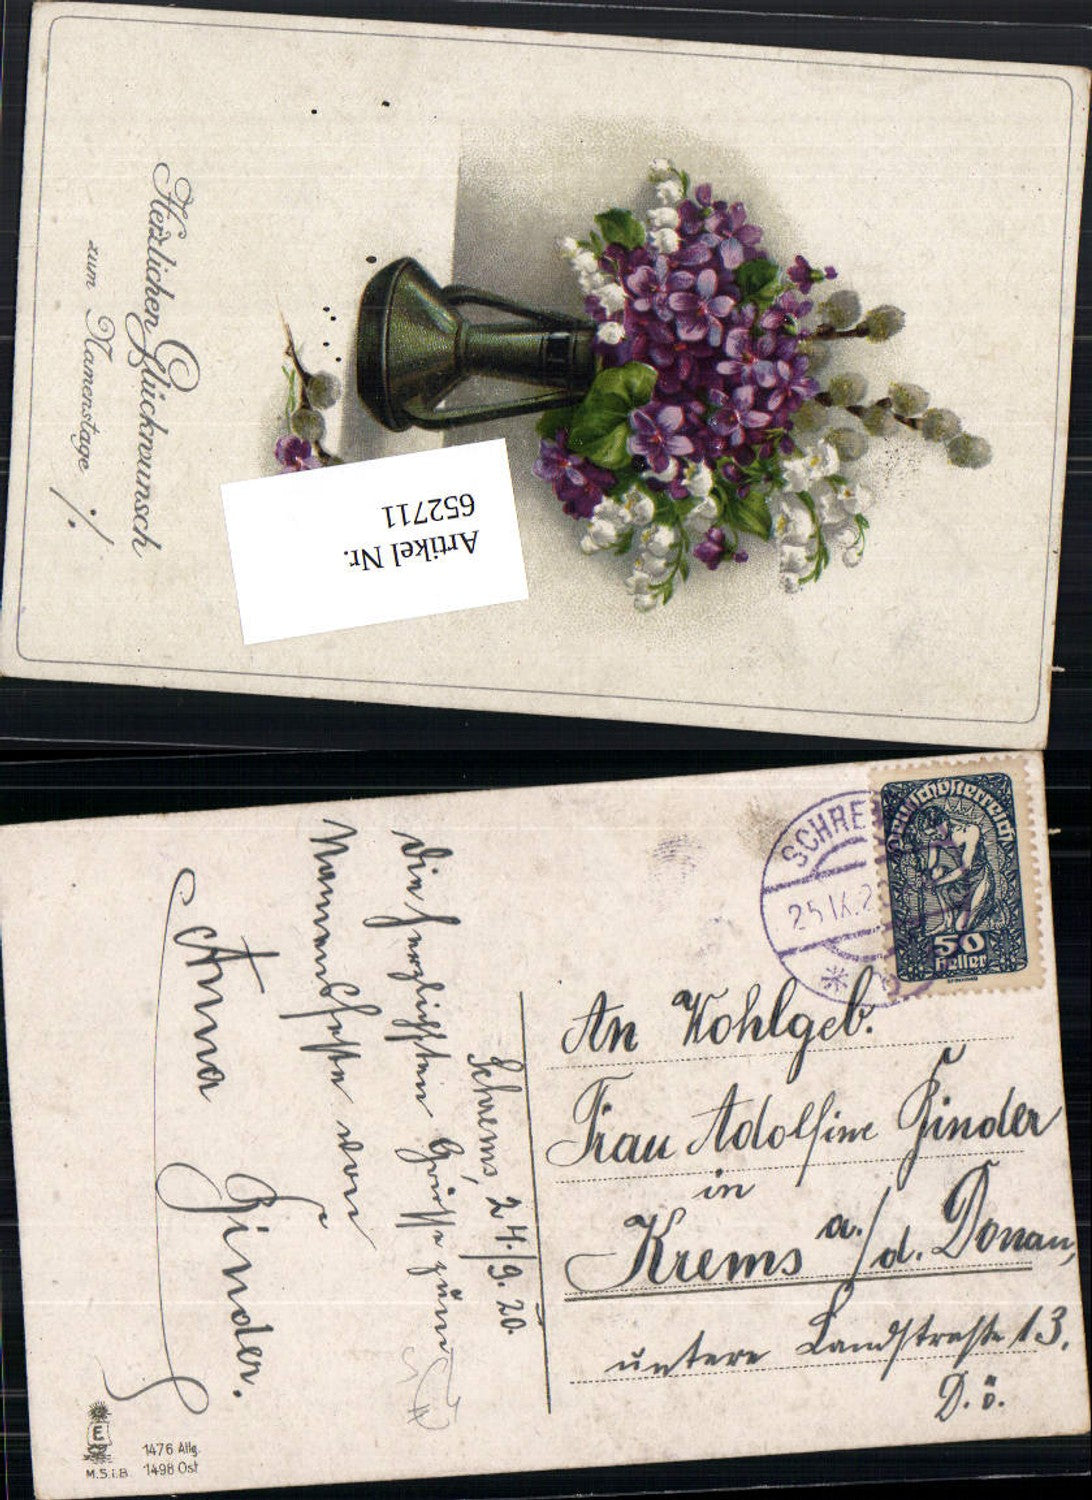 Herzlichen Glückwunsch
zum Namenstage ./.
Artikel Nr.
652711
SCHRE
25 IX. 2
Deutschösterreich
50
Heller
An Wohlgeb.
Frau Adolfine Binder
in
Krems a./d. Donau,
untere Landstraße 13.
D. ö.
Schrems, 24./9. 20.
Die herzlichsten Grüße zum
Namensfeste von
Anna Binder.
E
M.S.i.B.
1476 Allg.
1498 Ost